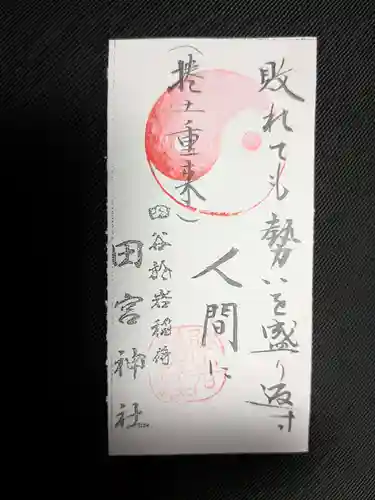 敗れても勢いを盛り返す
人間に
(捲土重来)
四谷於岩稲荷
田宮神社